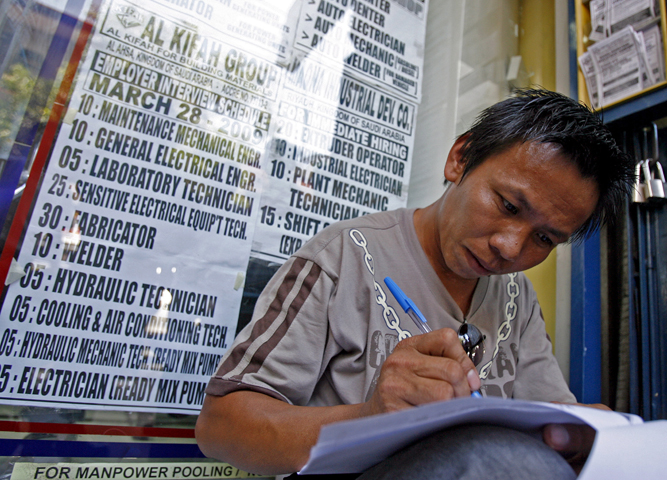 AL KIFAH GROUP
AL KIFAH FOR BUILDING MATERIALS
AL AHSA, KINGDOM OF SAUDI ARABIA
EMPLOYER INTERVIEW SCHEDULE
MARCH 28 - 2009
10 : MAINTENANCE MECHANICAL ENGR.
10 : GENERAL ELECTRICAL ENGR.
05 : LABORATORY TECHNICIAN
25 : SENSITIVE ELECTRICAL EQUIP'T TECH.
30 : FABRICATOR
10 : WELDER
05 : HYDRAULIC TECHNICIAN
05 : COOLING & AIR CONDITIONING TECH.
05 : HYDRAULIC MECHANIC TECH. (READY MIX PUMP
5 : ELECTRICIAN (READY MIX PUM
> AUTO ELECTRICIAN
> AUTO MECHANIC
> AUTO WELDER
INDUSTRIAL DEV. CO.
KINGDOM OF SAUDI ARABIA
FOR IMMEDIATE HIRING
20 : EXTRUDER OPERATOR
10 : INDUSTRIAL ELECTRICIAN
10 : PLANT MECHANIC
TECHNICIAN
15 : SHIFT
FOR MANPOWER POOLING